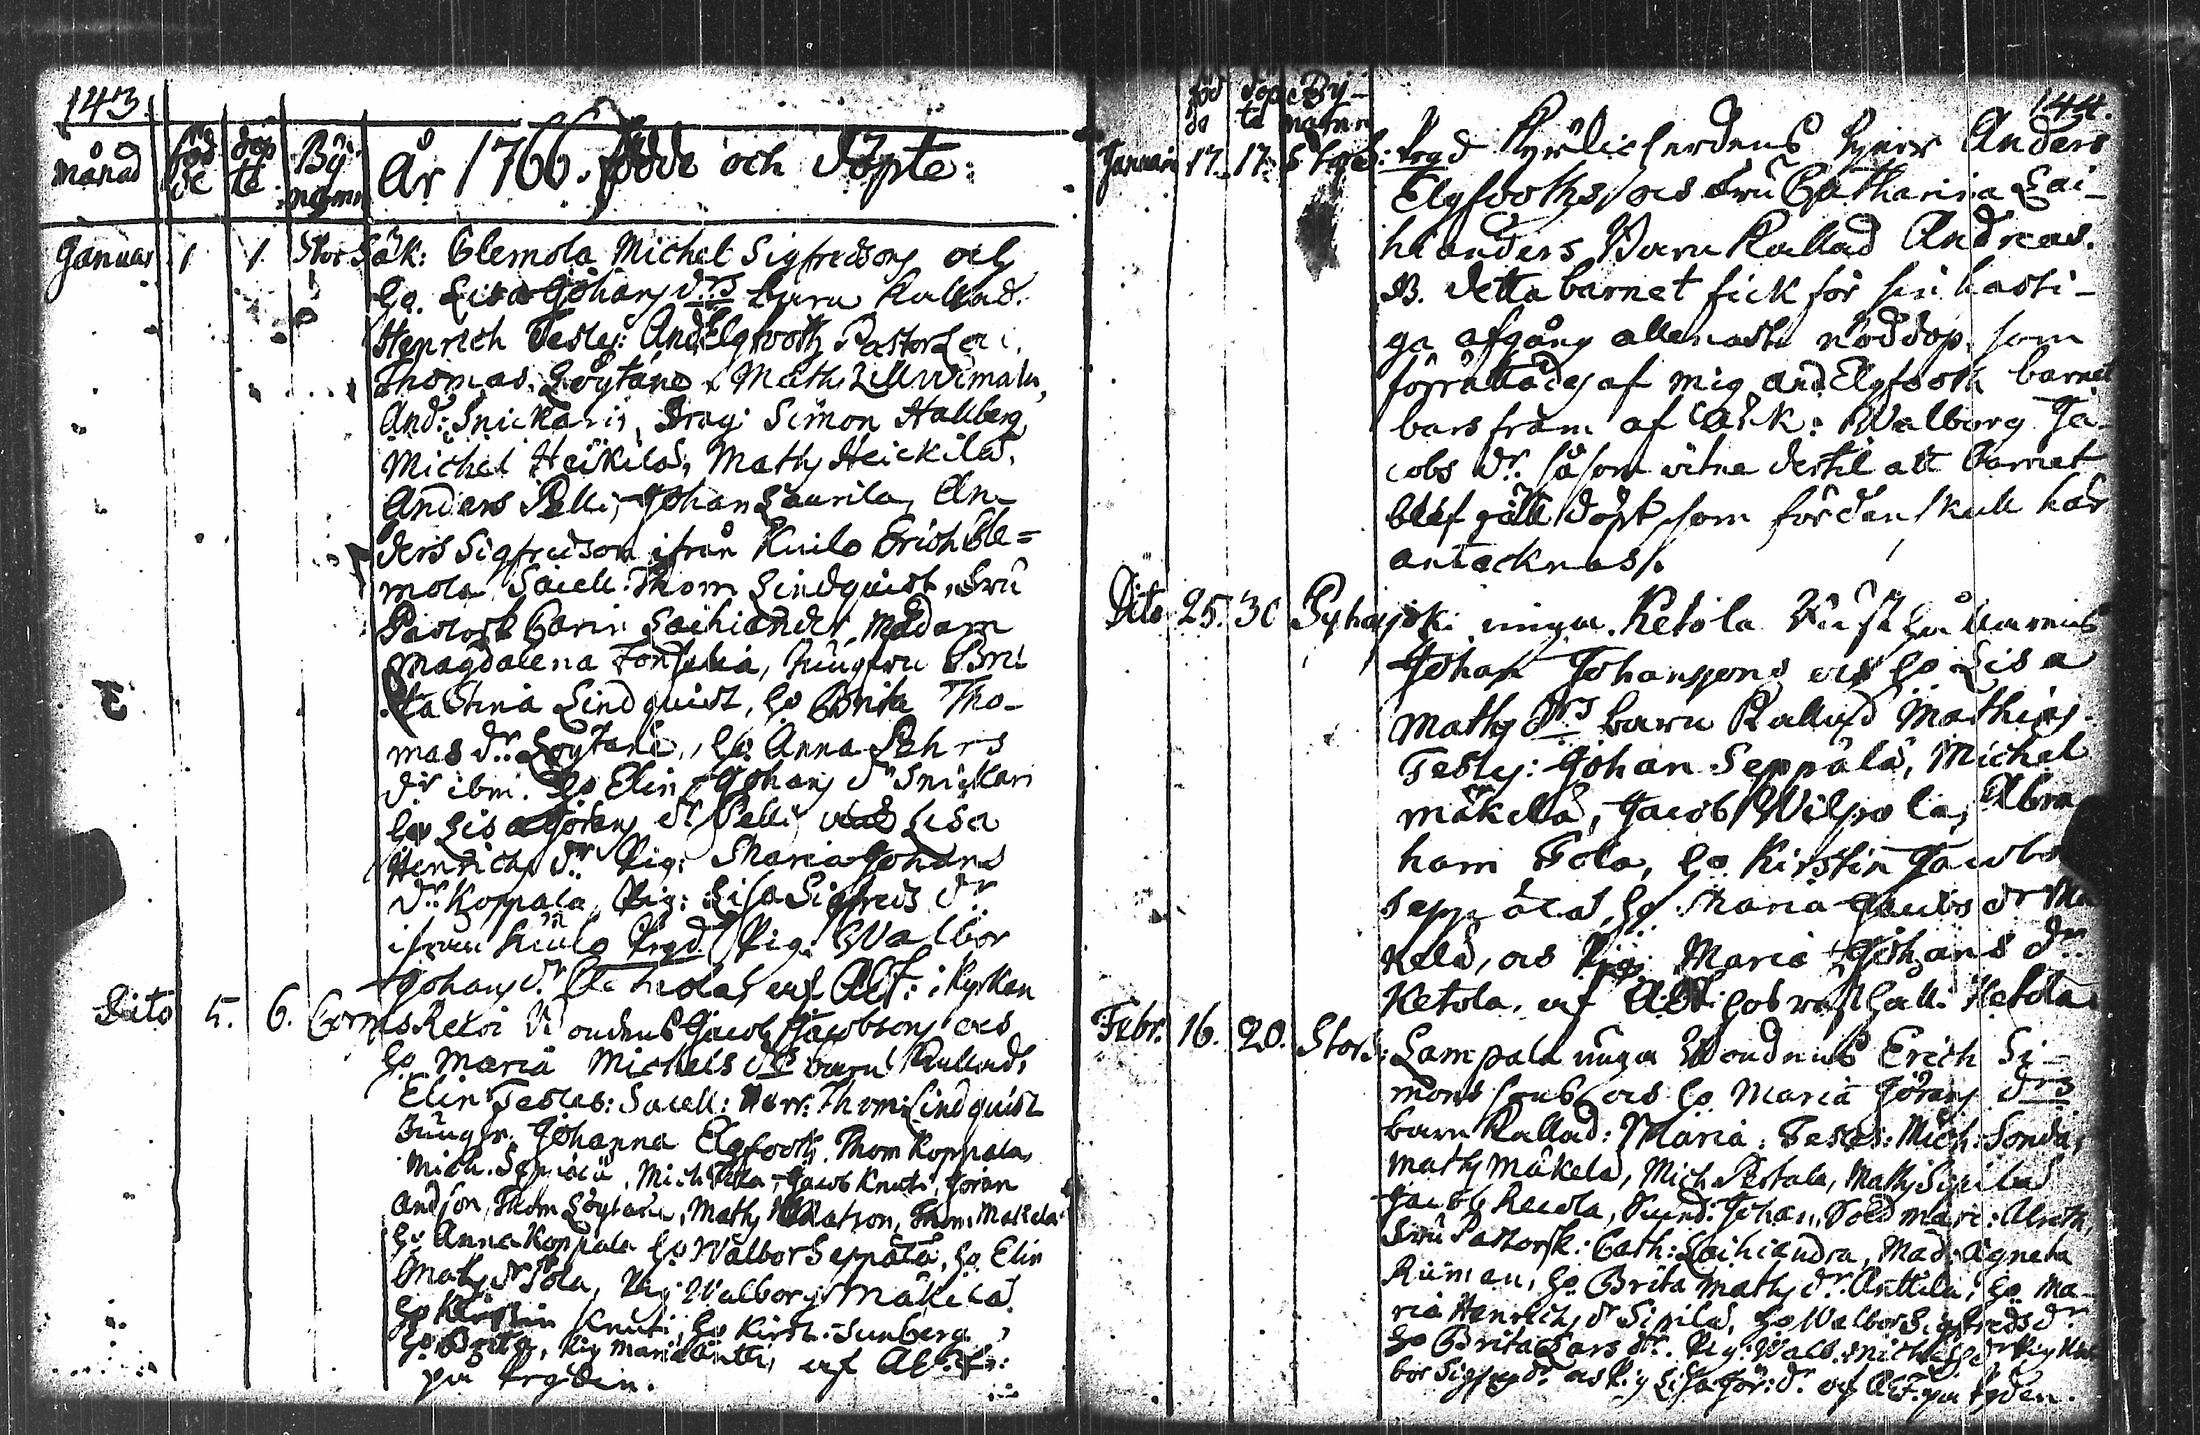 143.
Månad föd de döp te Bÿ namn År 1766. Födde och Döpte:
Januar 1 1 Stor Säk: Clemola Michel Sigfredsons och
Ho. Lisa Johans drs barn kallad.
Henrich Testes: And Elgfooth Pastor Loci,
Thomas Löytäne, Maths
And: Snickari, Drag: Simon Hallberg
Michel Heikilä, Maths Heickilä,
Anders Pelli, Johan Laurila, An-
ders Sigfredson ifrån Kiulo Erich Cle=
mola Sacell. Thom Lindquist, Fru
Pastorsk Carin Laihiander, Madam
Magdalena, Jungfru Bri
ta Stina Lindquist, Ho Brita Tho-
mas dr. Löytäne, Ho. Anna Lehrs
dr ibm. Ho Elin Johans dr Snickari
Ho Lisa Görans dr Pelli Lisa
Henrichs dr. Pig: Maria Johans
dr Koppala, Pig: Lisa Sigfreds dr
ifrån Kiulo Prgd Pig. Walbor
Johans dr af Abf: i Kyrkan
Dito 5. 6. Corvois Recoi Bondens Jacob Jacobsons och
Ho Maria Michels drs barn Kallad:
Elin Testes: Sacell: Herr: Thom: Lindquist
Jungfr. Johanna Elgfooth. Thom Koppala,
Mich. Seppälä, Mich, Jacob Knuti, Göran
Andson, Thom Löytäne, Maths Matson, Thom Mäkelä
Ho Anna Koppala Ho Walbor Seppälä, Ho. Elin
Mats dr Tola, Pig Walborg Mäkelä
Ho Kirstin Knuti, Ho Kirst: Sunberg,
Ho Brita, Pig Maria Antti, af Abf:
på Prgden.
144.
föd de döp te Bÿ namn
Januari 17. 17. Prgd Kyrkioherdens Herr Anders
Elgfooths och Fru Catharina Lai-
hianders Barn Kallad Andreas.
NB. detta barnet fick för sin hasti-
ga afgång allenast nöddop, som
förrättades af mig And Elgfooth barnet
bars fram af Walborg Ja-
cobs dr. såsom witne dertil att barnet
blef döpt som fördenskull här
antecknas.
Dito 25. 30 Pyhäjoki unga Ketola Rusthållarens
Johan Johanssons och Ho Lisa
Maths drs barn Kallad Mathias.
Testes: Johan Seppälä, Michel
Mäkelä, Jacob Wilpola, Abra
ham Tola, Ho. Kirstin Jacobs
Seppälä, Ho Maria Jacobs dr Mä
kelä, och Pig: Maria Johans dr.
Ketola. af Abf. Ketola
Febr. 16. 20. Stors: Lampala unga Bondens Erich Si-
mons sons och Ho Maria Görans drs
barn Kallad: Maria. Testes: Mich: Sonda,
Maths Mäkelä, Mich Pertola, Maths Sipilä
Jacob Recola, Johan,
Fru Pastorsk: Cath: Laihiandra, Mad: Agneta
Ruman, Ho. Brita Maths dr. Anttila, Ho. Ma-
ria Henrichs dr Sipilä, Ho Walbor Sigfreds dr
Ho Brita Lars dr. Pig: Walb: Michels dr Pig Wal
bor Sigfrds dr och Pig Lisa Gör: dr. af Abf. på Prgden.